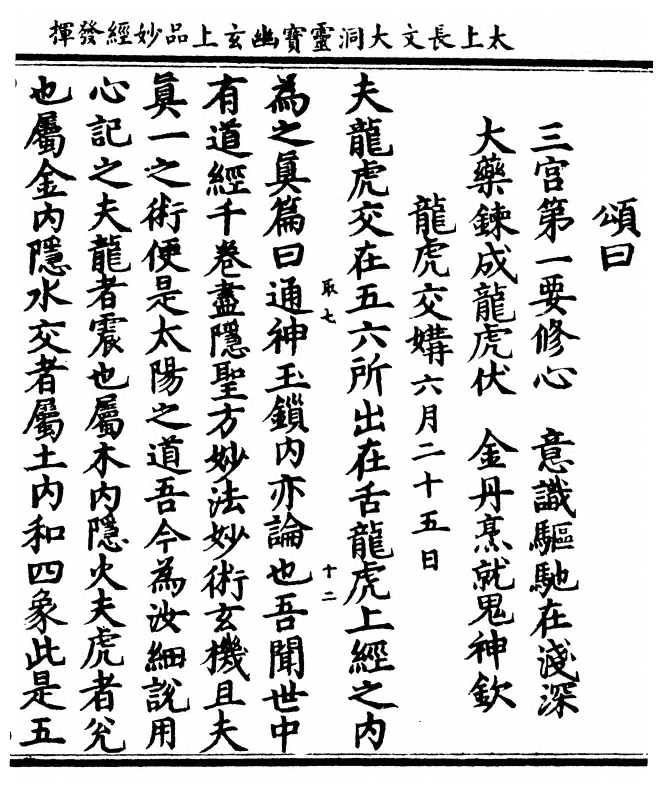 太上長文大洞靈寶幽玄上品妙經發揮
頌曰
三宮第一要修心　意識驅馳在淺深
大藥鍊成龍虎伏　金丹烹就鬼神欽
龍虎交媾六月二十五日
夫龍虎交在五六所出在舌龍虎上經之内
取七　十二
為之真篇曰通神玉鎖内亦論也吾聞世中
有道經千卷盡隱聖方妙法妙術玄機且夫
真一之術便是太陽之道吾今為汝細說用
心記之夫龍者震也屬木内隱火夫虎者兊
也屬金内隱水交者屬土内和四象此是五